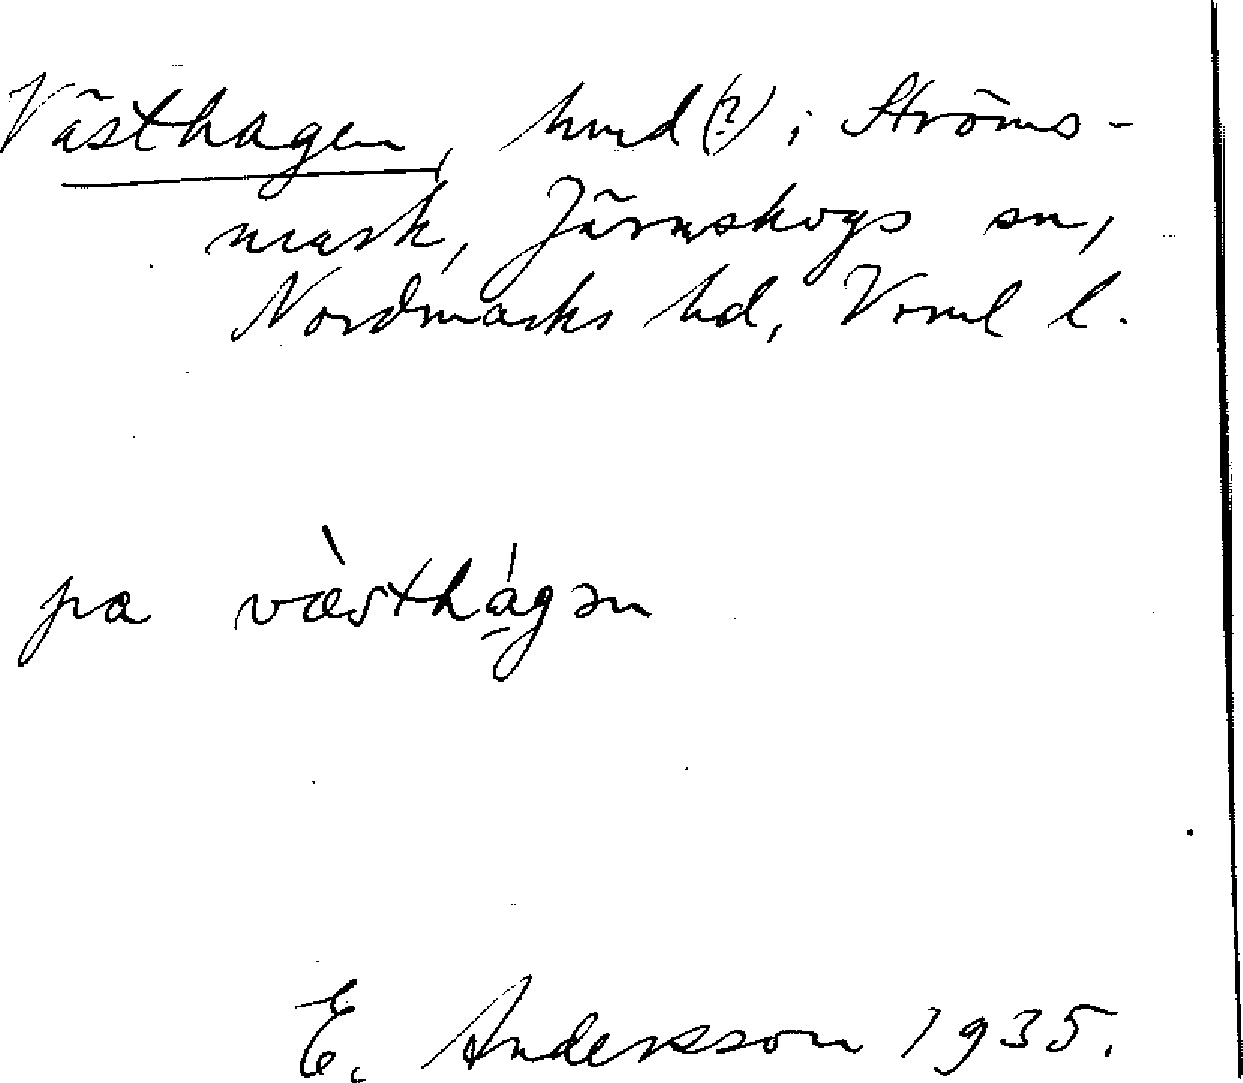 Västhagen, hmd(?) i Ströms-
mark, Järnskogs sn,
Nordmarks hd, Vrml l.
pa væsthágən
E. Andersson 1935.